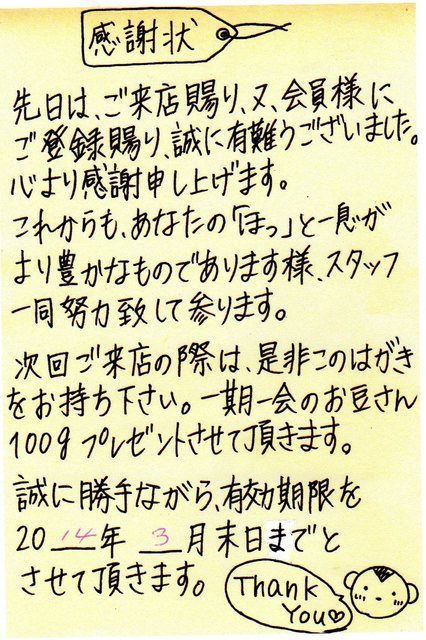 感謝状
先日は、ご来店賜り、又、会員様に
ご登録賜り、誠に有難うございました。
心より感謝申し上げます。
これからも、あなたの「ほっ」と一息が
より豊かなものであります様、スタッフ
一同努力致して参ります。
次回ご来店の際は、是非このはがき
をお持ち下さい。一期一会のお豆さん
100gプレゼントさせて頂きます。
誠に勝手ながら、有効期限を
2014年 3月末日までと
させて頂きます。
Thank
You♡